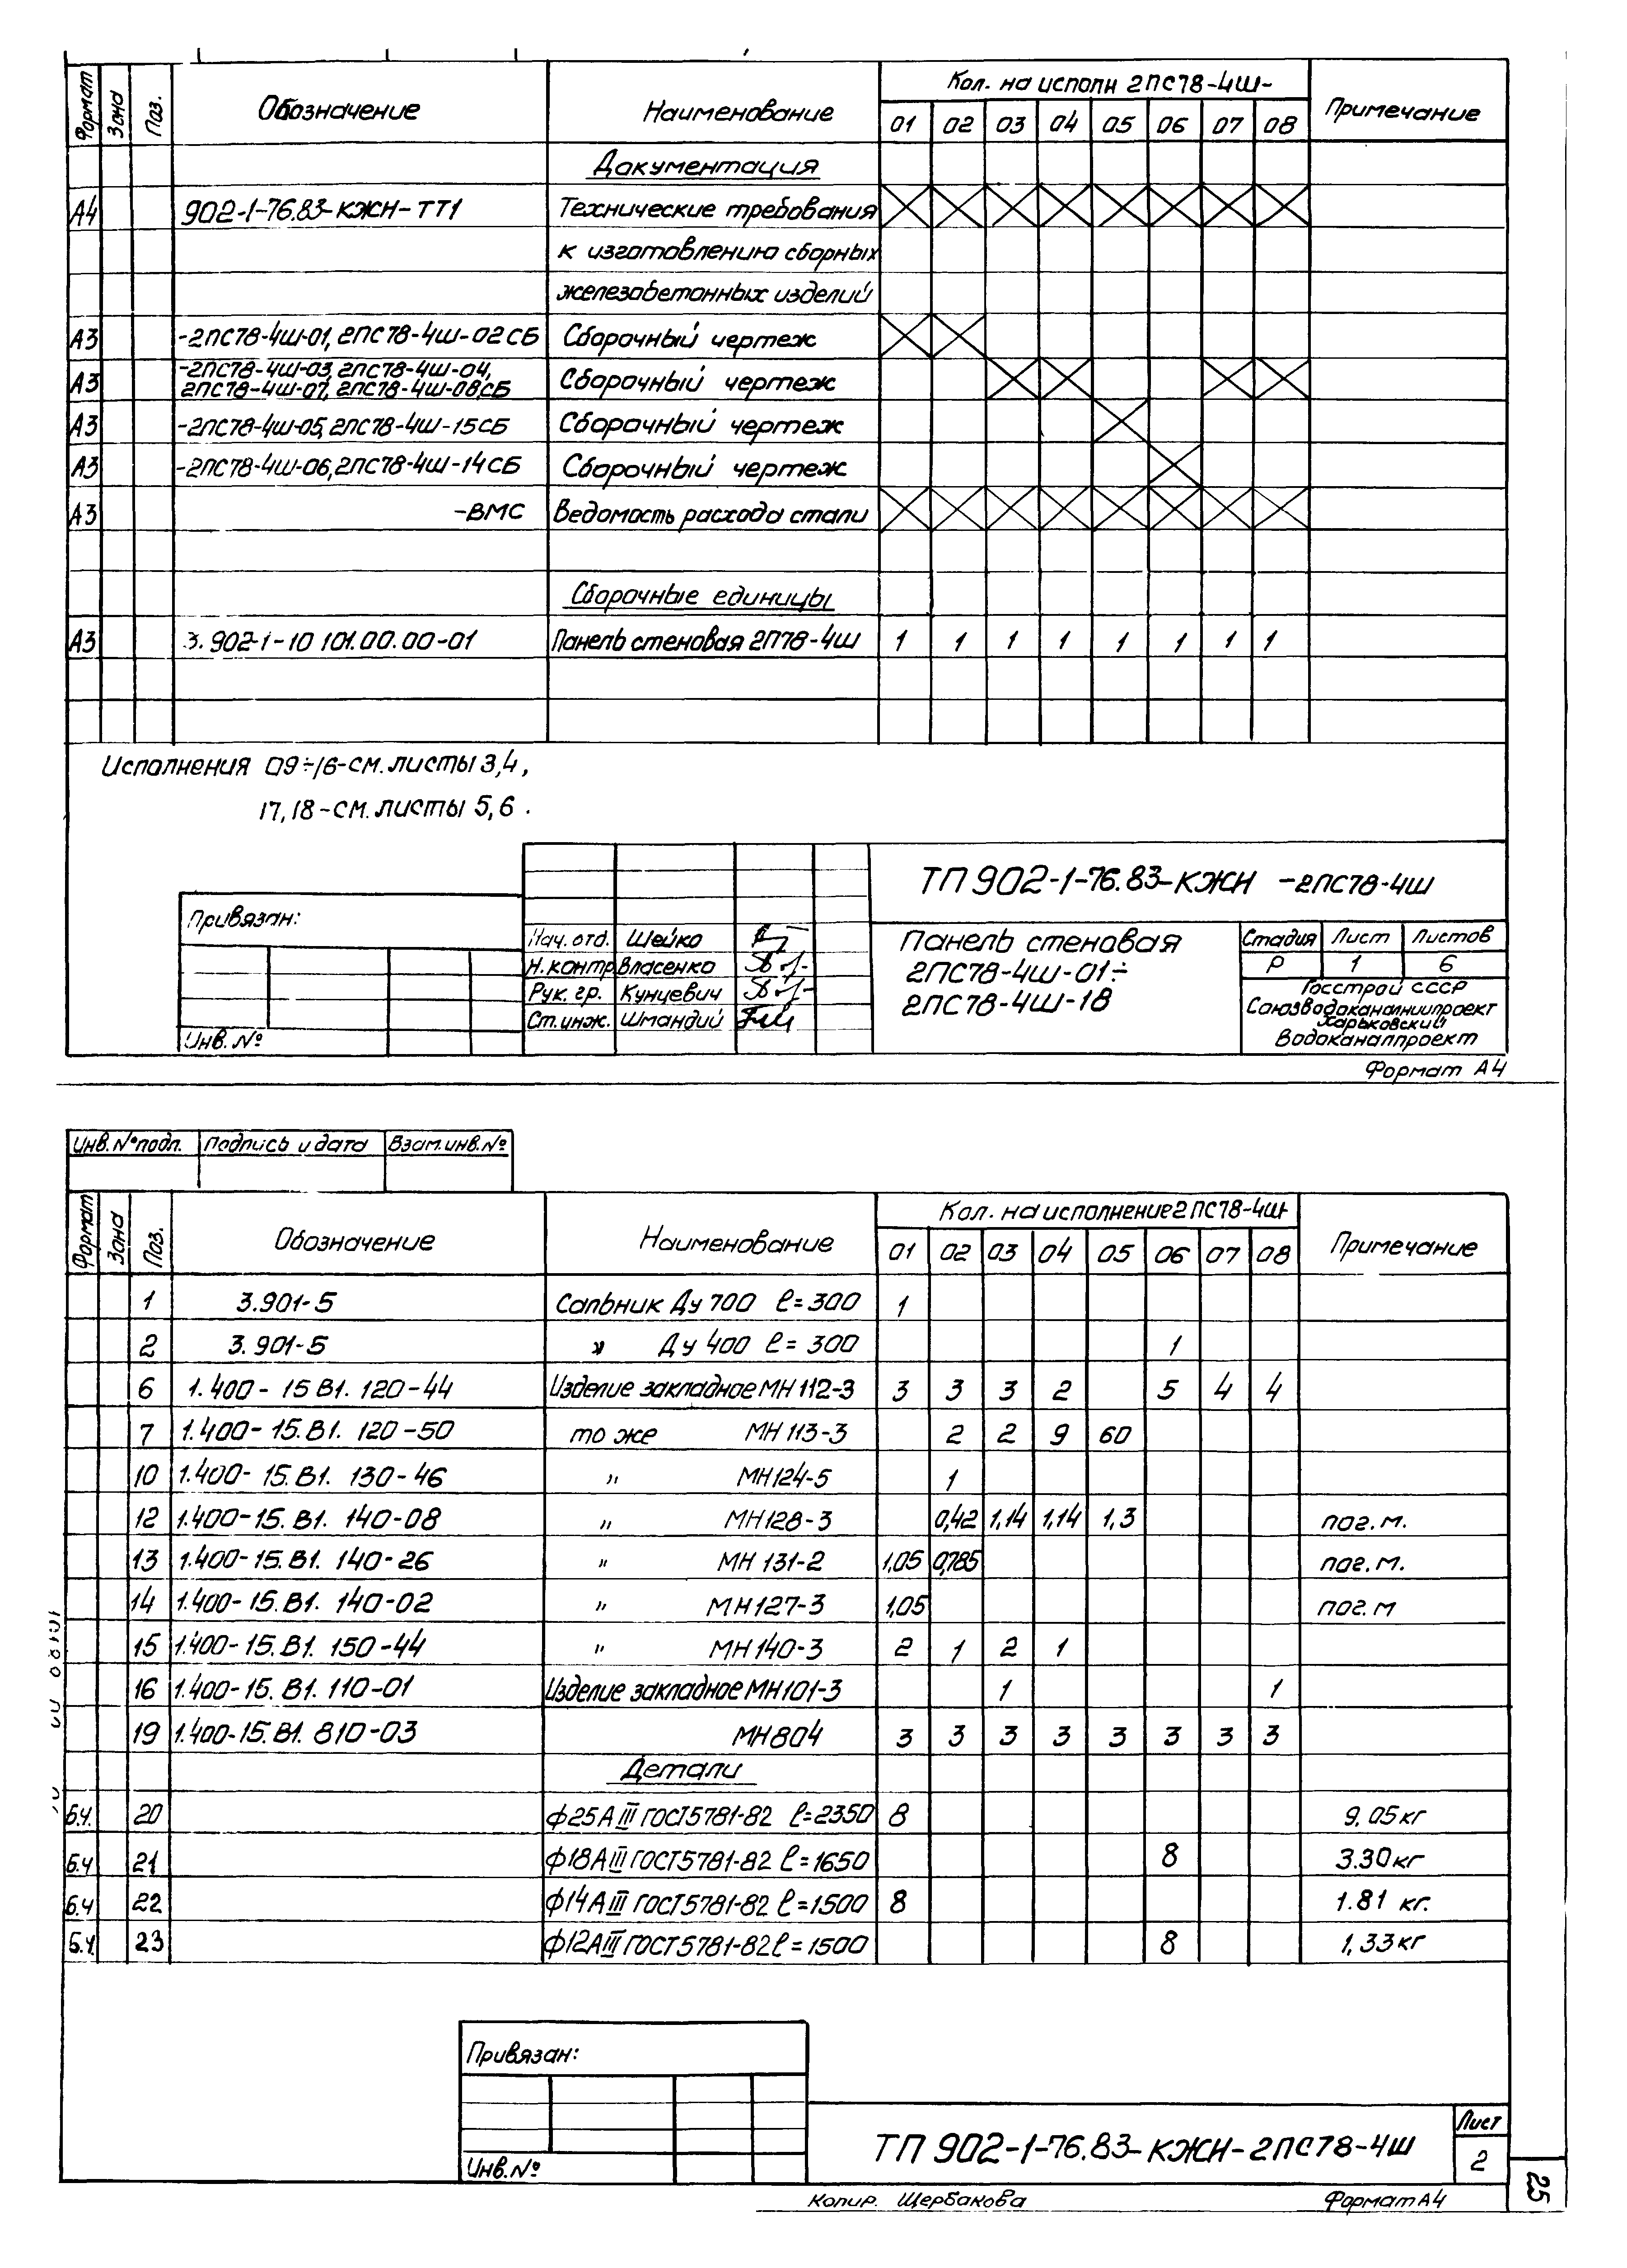 Формат Зона Поз. Обозначение Наименование Кол. на исполн 2ПС78-4Ш- Примечание
01 02 03 04 05 06 07 08
Документация
А4 902-1-76.83-КЖН-ТТ1 Технические требования
к изготовлению сборных
железобетонных изделий
А3 -2ПС78-4Ш-01, 2ПС78-4Ш-02СБ Сборочный чертеж
А3 -2ПС78-4Ш-03, 2ПС78-4Ш-04, 2ПС78-4Ш-07, 2ПС78-4Ш-08,СБ Сборочный чертеж
А3 -2ПС78-4Ш-05, 2ПС78-4Ш-15СБ Сборочный чертеж
А3 -2ПС78-4Ш-06, 2ПС78-4Ш-14СБ Сборочный чертеж
А3 -ВМС Ведомость расхода стали
Сборочные единицы
А3 3.902-1-10 101.00.00-01 Панель стеновая 2П78-4Ш 1 1 1 1 1 1 1 1
Исполнения 09÷16-см. листы 3,4,
17,18-см. листы 5,6.
ТП 902-1-76.83-КЖН -2ПС78-4Ш
Привязан:
Инв. №
Нач. отд. Шейко
Н.контр Власенко
Рук. гр. Кунцевич
Ст.инж. Шмандий
Панель стеновая
2ПС78-4Ш-01÷
2ПС78-4Ш-18
Стадия Лист Листов
Р 1 6
Госстрой СССР
Союзводоканалниипроект
Харьковский
Водоканалпроект
Формат А4
Инв. № подл. Подпись и дата Взам.инв.№
Формат Зона Поз. Обозначение Наименование Кол. на исполнение 2ПС78-4Ш- Примечание
01 02 03 04 05 06 07 08
1 3.901-5 Сальник Ду 700 ℓ=300 1
2 3.901-5 » Ду 400 ℓ=300 1
6 1.400-15 В1. 120-44 Изделие закладное МН 112-3 3 3 3 2 5 4 4
7 1.400-15.В1. 120-50 то же МН 113-3 2 2 9 60
10 1.400-15.В1. 130-46 " МН124-5 1
12 1.400-15.В1. 140-08 " МН128-3 0,42 1,14 1,14 1,3 пог.м.
13 1.400-15.В1. 140-26 " МН 131-2 1,05 0,785 пог.м.
14 1.400-15.В1. 140-02 " МН127-3 1,05 пог.м
15 1.400-15.В1. 150-44 " МН140-3 2 1 2 1
16 1.400-15.В1. 110-01 Изделие закладное МН101-3 1 1
19 1.400-15.В1. 810-03 МН804 3 3 3 3 3 3 3 3
Детали
Б.Ч. 20 ф25АIII ГОСТ5781-82 ℓ=2350 8 9,05кг
Б.Ч 21 ф18АIII ГОСТ5781-82 ℓ=1650 8 3.30кг
Б.Ч 22 ф14АIII ГОСТ5781-82 ℓ=1500 8 1.81 кг.
Б.Ч. 23 ф12АIII ГОСТ5781-82 ℓ=1500 8 1,33кг
Привязан:
Инв.№
ТП 902-1-76.83-КЖН-2ПС78-4Ш
Лист
2
25
Копир. Щербакова Формат А4